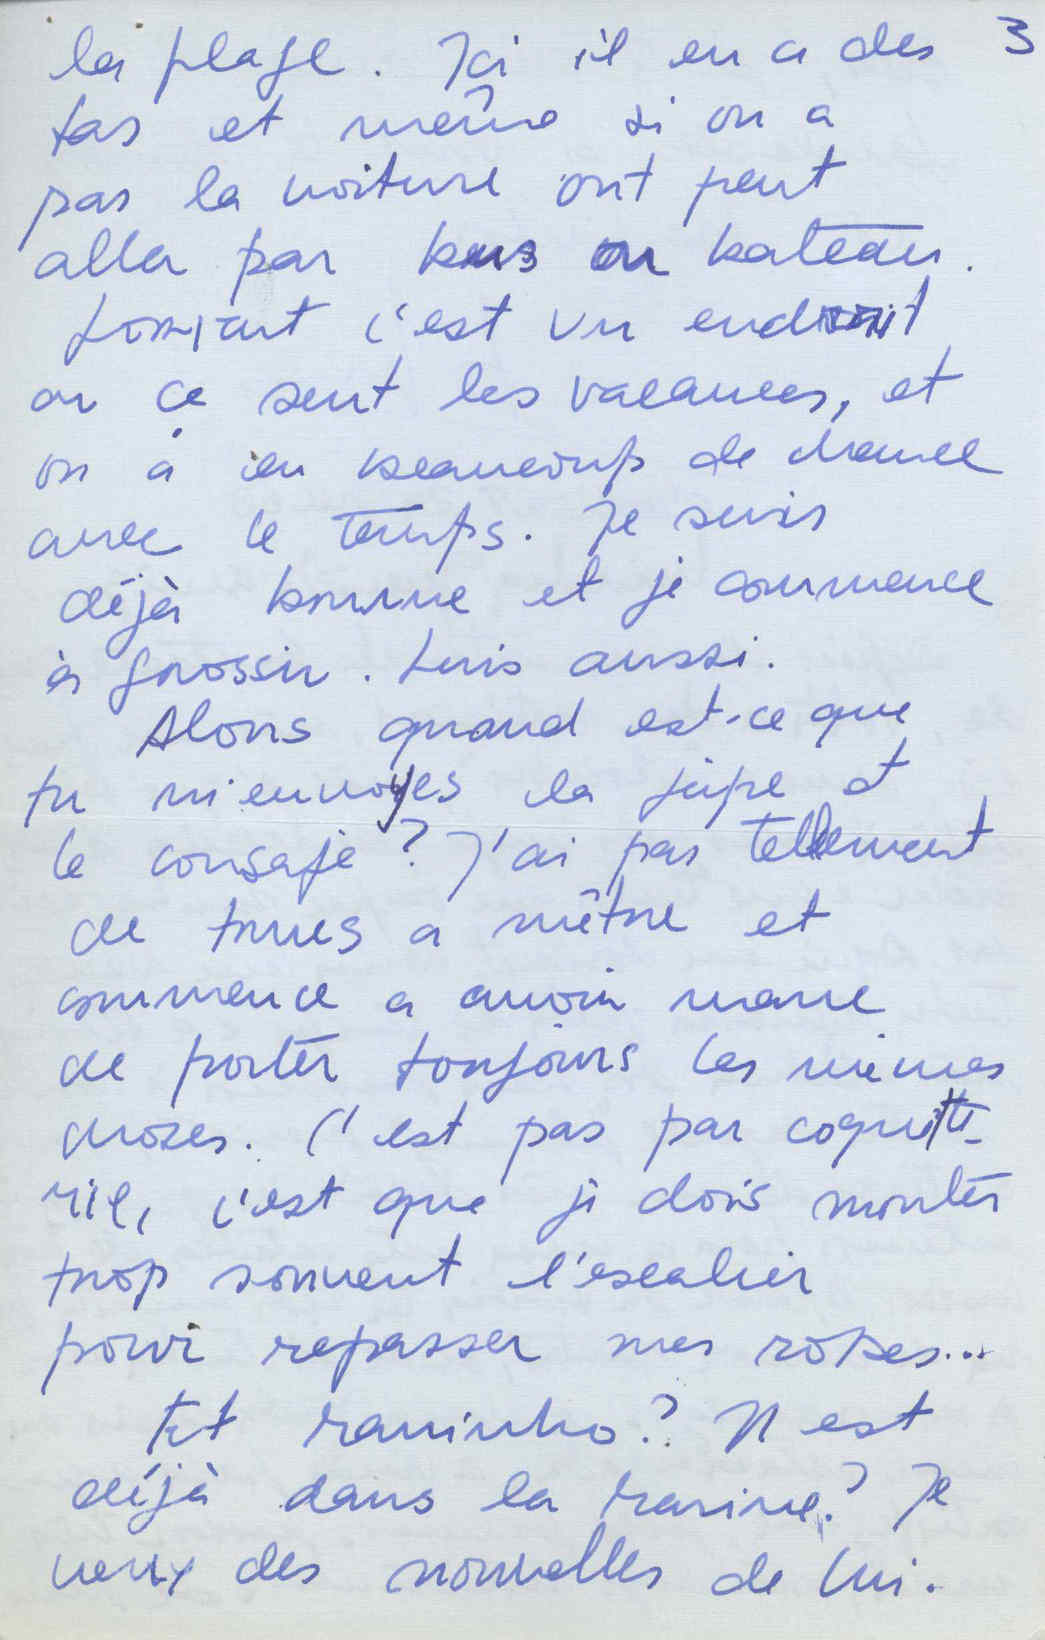 la plage. Ici il en a des 3
tas et même si on a
pas la voiture ont peut
aller par bus ou bateau.
c'est un endroit
ou ce sent les vacances, et
on à eu beaucoup de chance
avec le temps. Je suis
déjà bronne et je commence
à grossir. Luis aussi.
Alors quand est-ce que
tu m'envoyes la jupe et
le corsaje? J'ai pas tellement
de trucs a mêtre et
commence a avoir marre
de porter toujours les mêmes
choses. C'est pas par coquette-
rie, c'est que je dois monter
trop souvent l'escalier
pour repasser mes robes...
Et? Il est
déjà dans la marine? Je
veux des nouvelles de lui.